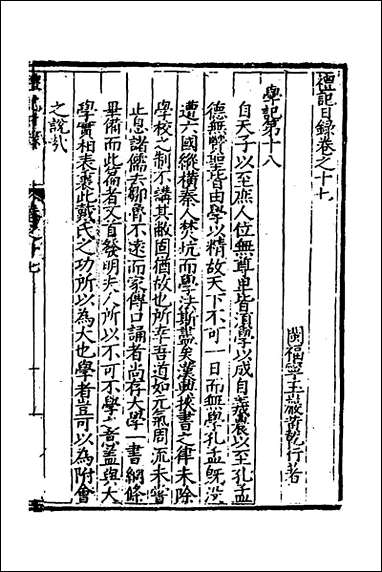 禮記日錄卷之十七
閩福寧王嚴 乾行著
學記第十八
自天子以至庶人位無尊卑皆須學以成自羲農以至孔孟
德無賢聖皆由學以精故天下不可一日而無學孔孟旣没
遭六國縱横秦人焚坑而學法斯蓋矣漢興挾書之律未除
學校之制不講其敝固猶故也所幸吾道如元氣周流未嘗
止息諸儒去鄒魯不遠而家傳口誦者尚存大學一書綱條
畢備而此篇者又首發明夫人所以不可不學之意蓋與大
學實相表裏此戴氏之功所以為大也學者豈可以為附會
之說哉